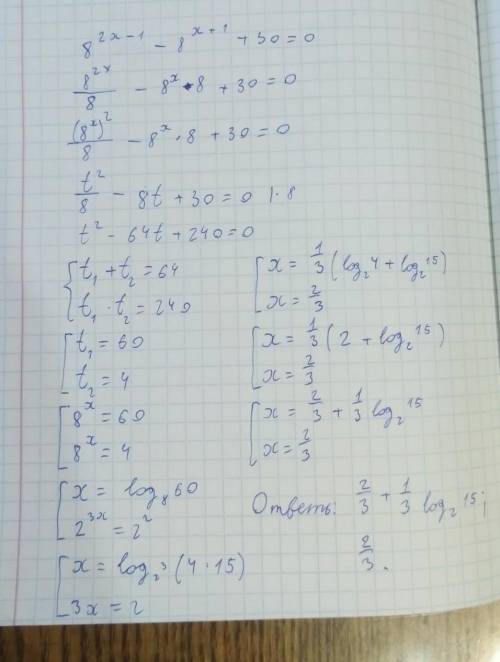 8^{2x-1} - 8^{x+1} + 30 = 0
\frac{8^{2x}}{8} - 8^x · 8 + 30 = 0
\frac{(8^x)^2}{8} - 8^x · 8 + 30 = 0
\frac{t^2}{8} - 8t + 30 = 0 | · 8
t^2 - 64t + 240 = 0
{ t_1 + t_2 = 64
t_1 · t_2 = 240
[ t_1 = 60
t_2 = 4
[ 8^x = 60
8^x = 4
[ x = log_8 60
2^{3x} = 2^2
[ x = log_{2^3} (4 · 15)
3x = 2
[ x = \frac{1}{3} (log_2 4 + log_2 15)
x = \frac{2}{3}
[ x = \frac{1}{3} (2 + log_2 15)
x = \frac{2}{3}
[ x = \frac{2}{3} + \frac{1}{3} log_2 15
x = \frac{2}{3}
Ответь: \frac{2}{3} + \frac{1}{3} log_2 15;
\frac{2}{3}.